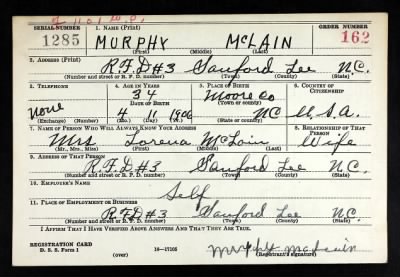 SERIAL NUMBER 1. NAME (Print) ORDER NUMBER
1285 MURPHY McLAIN 162
(First) (Middle) (Last)
3. ADDRESS (Print)
R.F.D #3 Sanford Lee N.C.
(Number and street or R. F. D. number) (Town) (County) (State)
2. TELEPHONE 4. AGE IN YEARS 5. PLACE OF BIRTH 6. COUNTRY OF CITIZENSHIP
34 Moore Co
DATE OF BIRTH (Town or county)
none 4 11 1906 NC U.S.A.
(Exchange) (Number) (Mo.) (Day) (Yr.) (State or country)
7. NAME OF PERSON WHO WILL ALWAYS KNOW YOUR ADDRESS 8. RELATIONSHIP OF THAT PERSON
Mrs Lorena McLain Wife
(Mr., Mrs., Miss) (First) (Middle) (Last)
9. ADDRESS OF THAT PERSON
R.F.D #3 Sanford Lee N.C.
(Number and street or R. F. D. number) (Town) (County) (State)
10. EMPLOYER'S NAME
Self
11. PLACE OF EMPLOYMENT OR BUSINESS
R.F.D #3 Sanford Lee N.C.
(Number and street or R. F. D. number) (Town) (County) (State)
I AFFIRM THAT I HAVE VERIFIED ABOVE ANSWERS AND THAT THEY ARE TRUE.
REGISTRATION CARD
D. S. S. Form 1 16—17105 Murphy McLain
(over) (Registrant's signature)